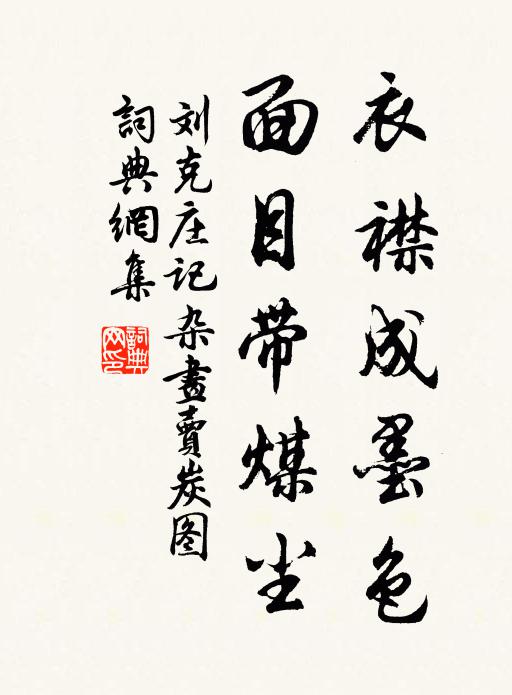 衣襟成墨色
面目带煤尘
刘克庄记杂畫賣炭图
詞典網集
詞典网印